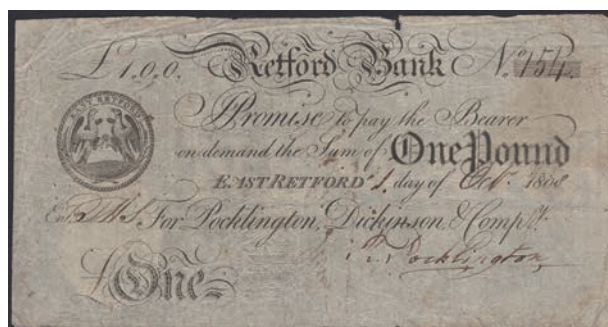 £1.0.0. Retford Bank No. 754
EAST RETFORD
I Promise to pay the Bearer
on demand the Sum of One Pound
EAST RETFORD 1 day of Octr. 1808
For Pocklington, Dickinson, & Compy.
R. Pocklington
£ One